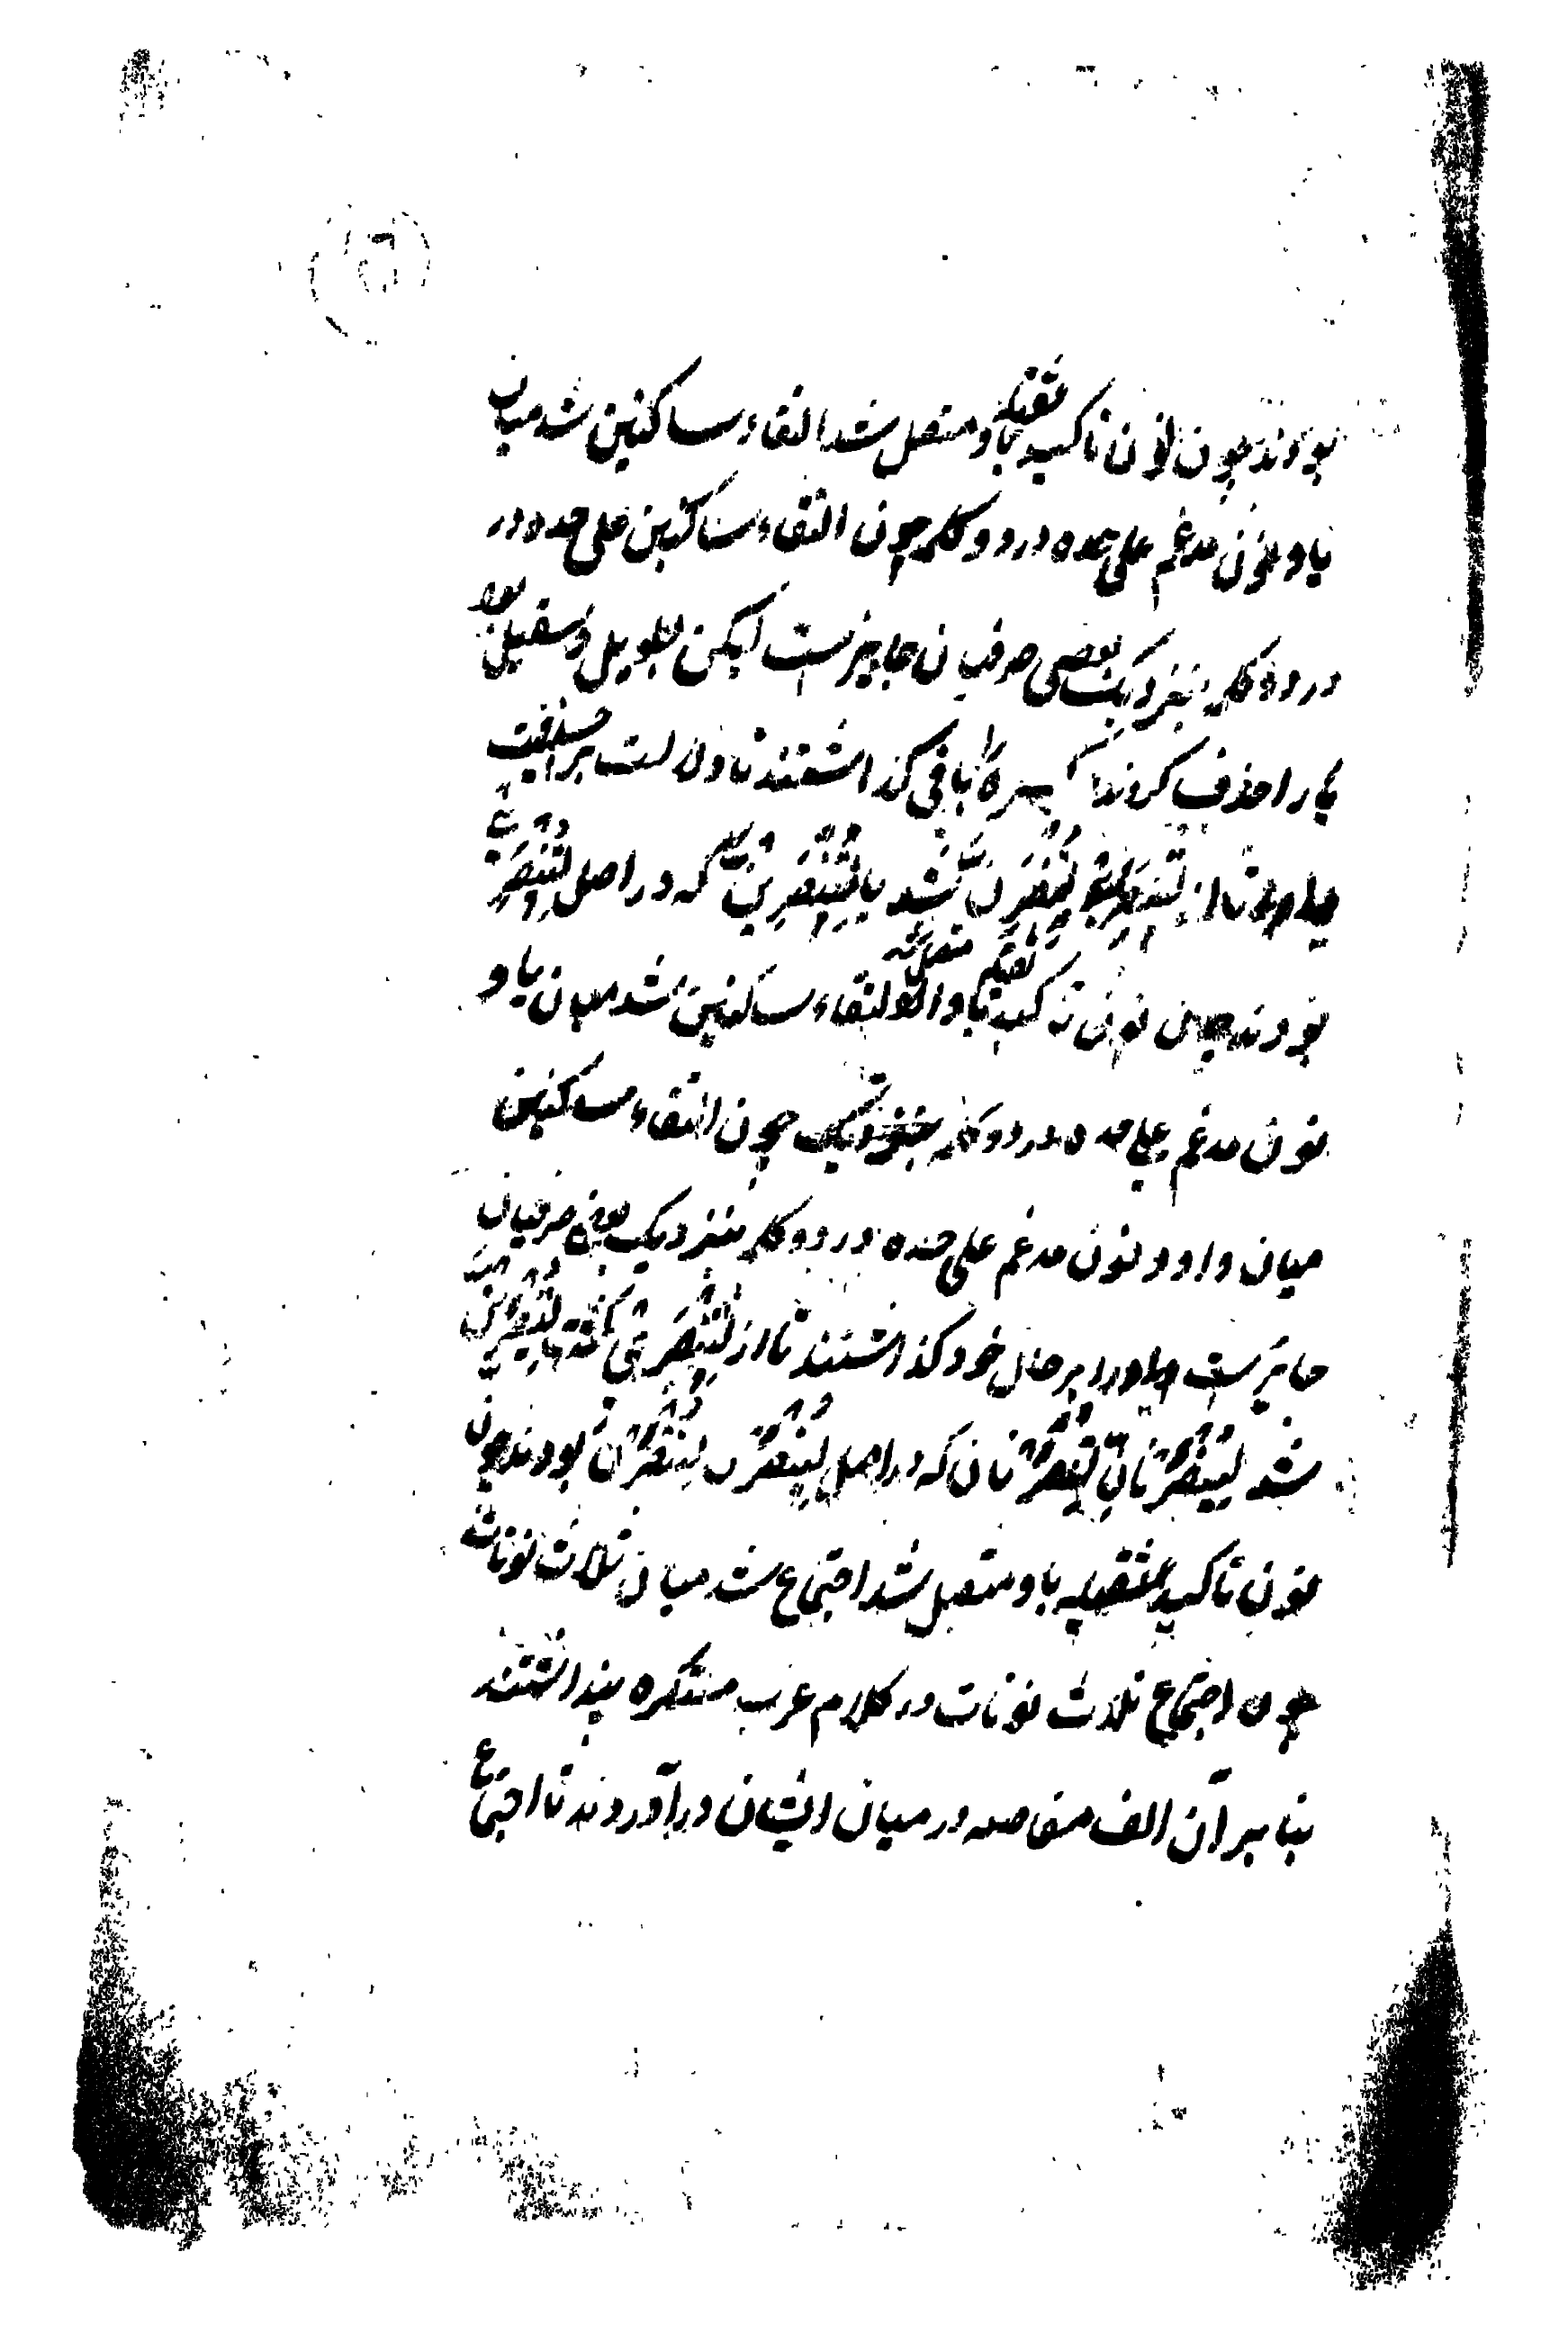 بودند چون نون تاکید ثقیله باو متصل شد التقاء ساکنین شد میان
یا و نون مدغم علی حده در دو کلمه چون التقاء ساکنین علی حده در
در دو کلمه بنزدیک بعضی صرفیان جایزست لیکن طویل و ثقیل بود
یا را حذف کردند کسره را باقی گذاشتند تا دلالت بر حذفیت
یا تا از شد که در اصل
بودند چون نون تاکید ثقیله باو متصل شد التقاء ساکنین شد میان یا و
نون مدغم علی حده در دو کلمه چون التقاء ساکنین
میان واو و نون مدغم علی حده در دو کلمه بنزدیک بعضی صرفیان
جایزست را بر حال خود گذاشتند تا از
شد لینصرنان لتنصرنان که در اصل لینصرن لتنصرن بودند چون
نون تاکید ثقیله باو متصل شد اجتماع شد میان ثلاث نونات
چون اجتماع ثلاث نونات در کلام عرب مستکره پنداشتند
بنابر آن الف فاصله در میان ایشان درآوردند تا اجتماع